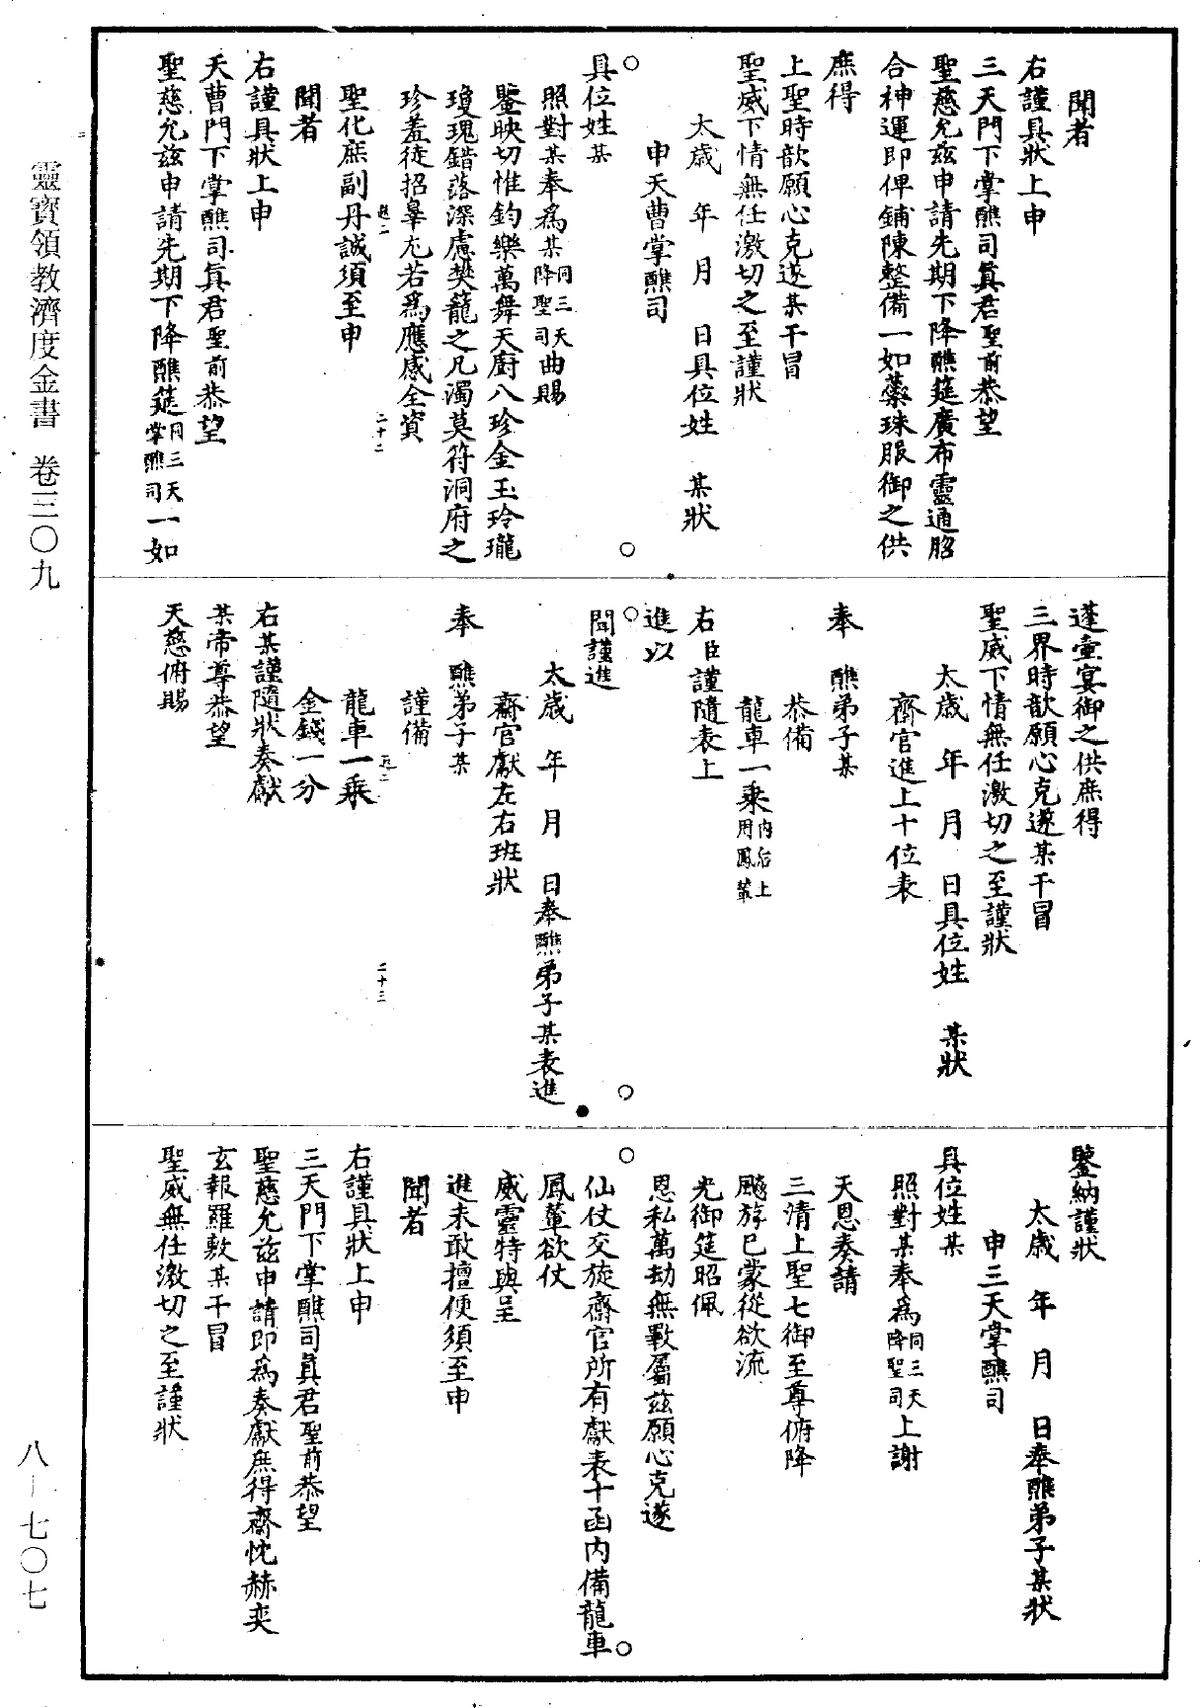 聞者
右謹具狀上申
三天門下掌醮司眞君聖前恭望
聖慈允兹申請先期下降醮筵廣布靈通胎
合神運即俾鋪陳整備一如蘂珠服御之供
庶得
上聖時歆願心克遂某干冒
聖威下情無任激切之至謹狀
太歲 年 月 日具位姓 某狀
申天曹掌醮司
具位姓某
照對某奉爲某同三天降聖司曲賜
鑒映切惟鈞樂萬舞天廚八珍金玉玲瓏
瓊瑰錯落深慮樊籠之凡濁莫符洞府之
珍羞徒招皐尤若爲應感全資
二十二
聖化庶副丹誠須至申
聞者
右謹具狀上申
天曹門下掌醮司眞君聖前恭望
聖慈允兹申請先期下降醮筵同三天掌醮司一如
蓬壼宴御之供庶得
三界時歆願心克遂某干冒
聖威下情無任激切之至謹狀
太歲 年 月 日具位姓 某狀
齋官進上十位表
奉 醮弟子某
恭備
龍車一乗內后上用鳳輦
右臣謹隨表上
進以
聞謹進
太歲 年 月 日奉醮弟子某表進
齋官獻左右班狀
奉 醮弟子某
謹備
二十三
龍車一乗
金錢一分
右某謹隨狀奏獻
某帝尊恭望
天慈俯賜
鑒納謹狀
太歲 年 月 日奉醮弟子某狀
申三天掌醮司
具位姓某
照對某奉爲同三天降聖司上謝
天恩奏請
三清上聖七御至尊俯降
飈斿已蒙從欲流
光御筵昭佩
恩私萬劫無斁屬兹願心克遂
仙仗交旋齋官所有獻表十函內備龍車
鳳輦欲仗
威靈特與呈
進未敢擅便須至申
聞者
右謹具狀上申
三天門下掌醮司眞君聖前恭望
聖慈允兹申請即爲奏獻庶得齋忱赫奕
玄報羅敷某干冒
聖威無任激切之至謹狀
靈寶領教濟度金書 卷三〇九
八—七〇七